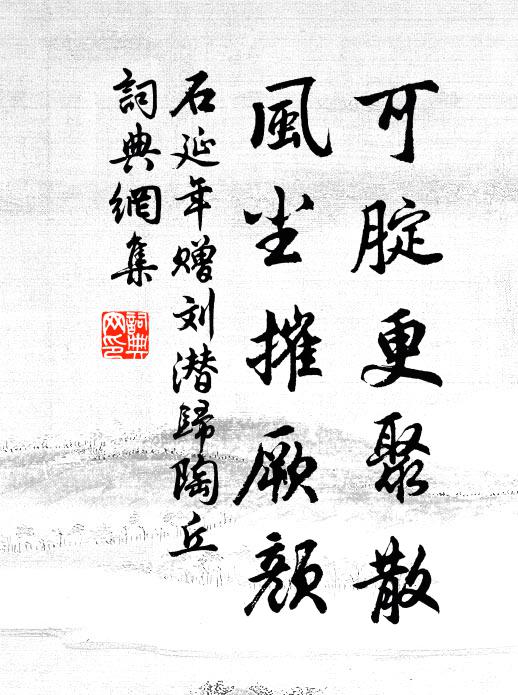 可腚更聚散
風尘摧厥颜
石延年赠刘潜歸陶丘
詞典網集
詞典
网印